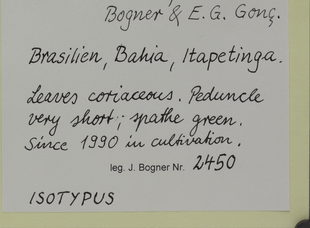 Bogner & E. G. Gonç.
Brasilien, Bahia, Itapetinga.
Leaves coriaceous. Peduncle
very short; spathe green.
Since 1990 in cultivation.
leg. J. Bogner Nr. 2450
ISOTYPUS